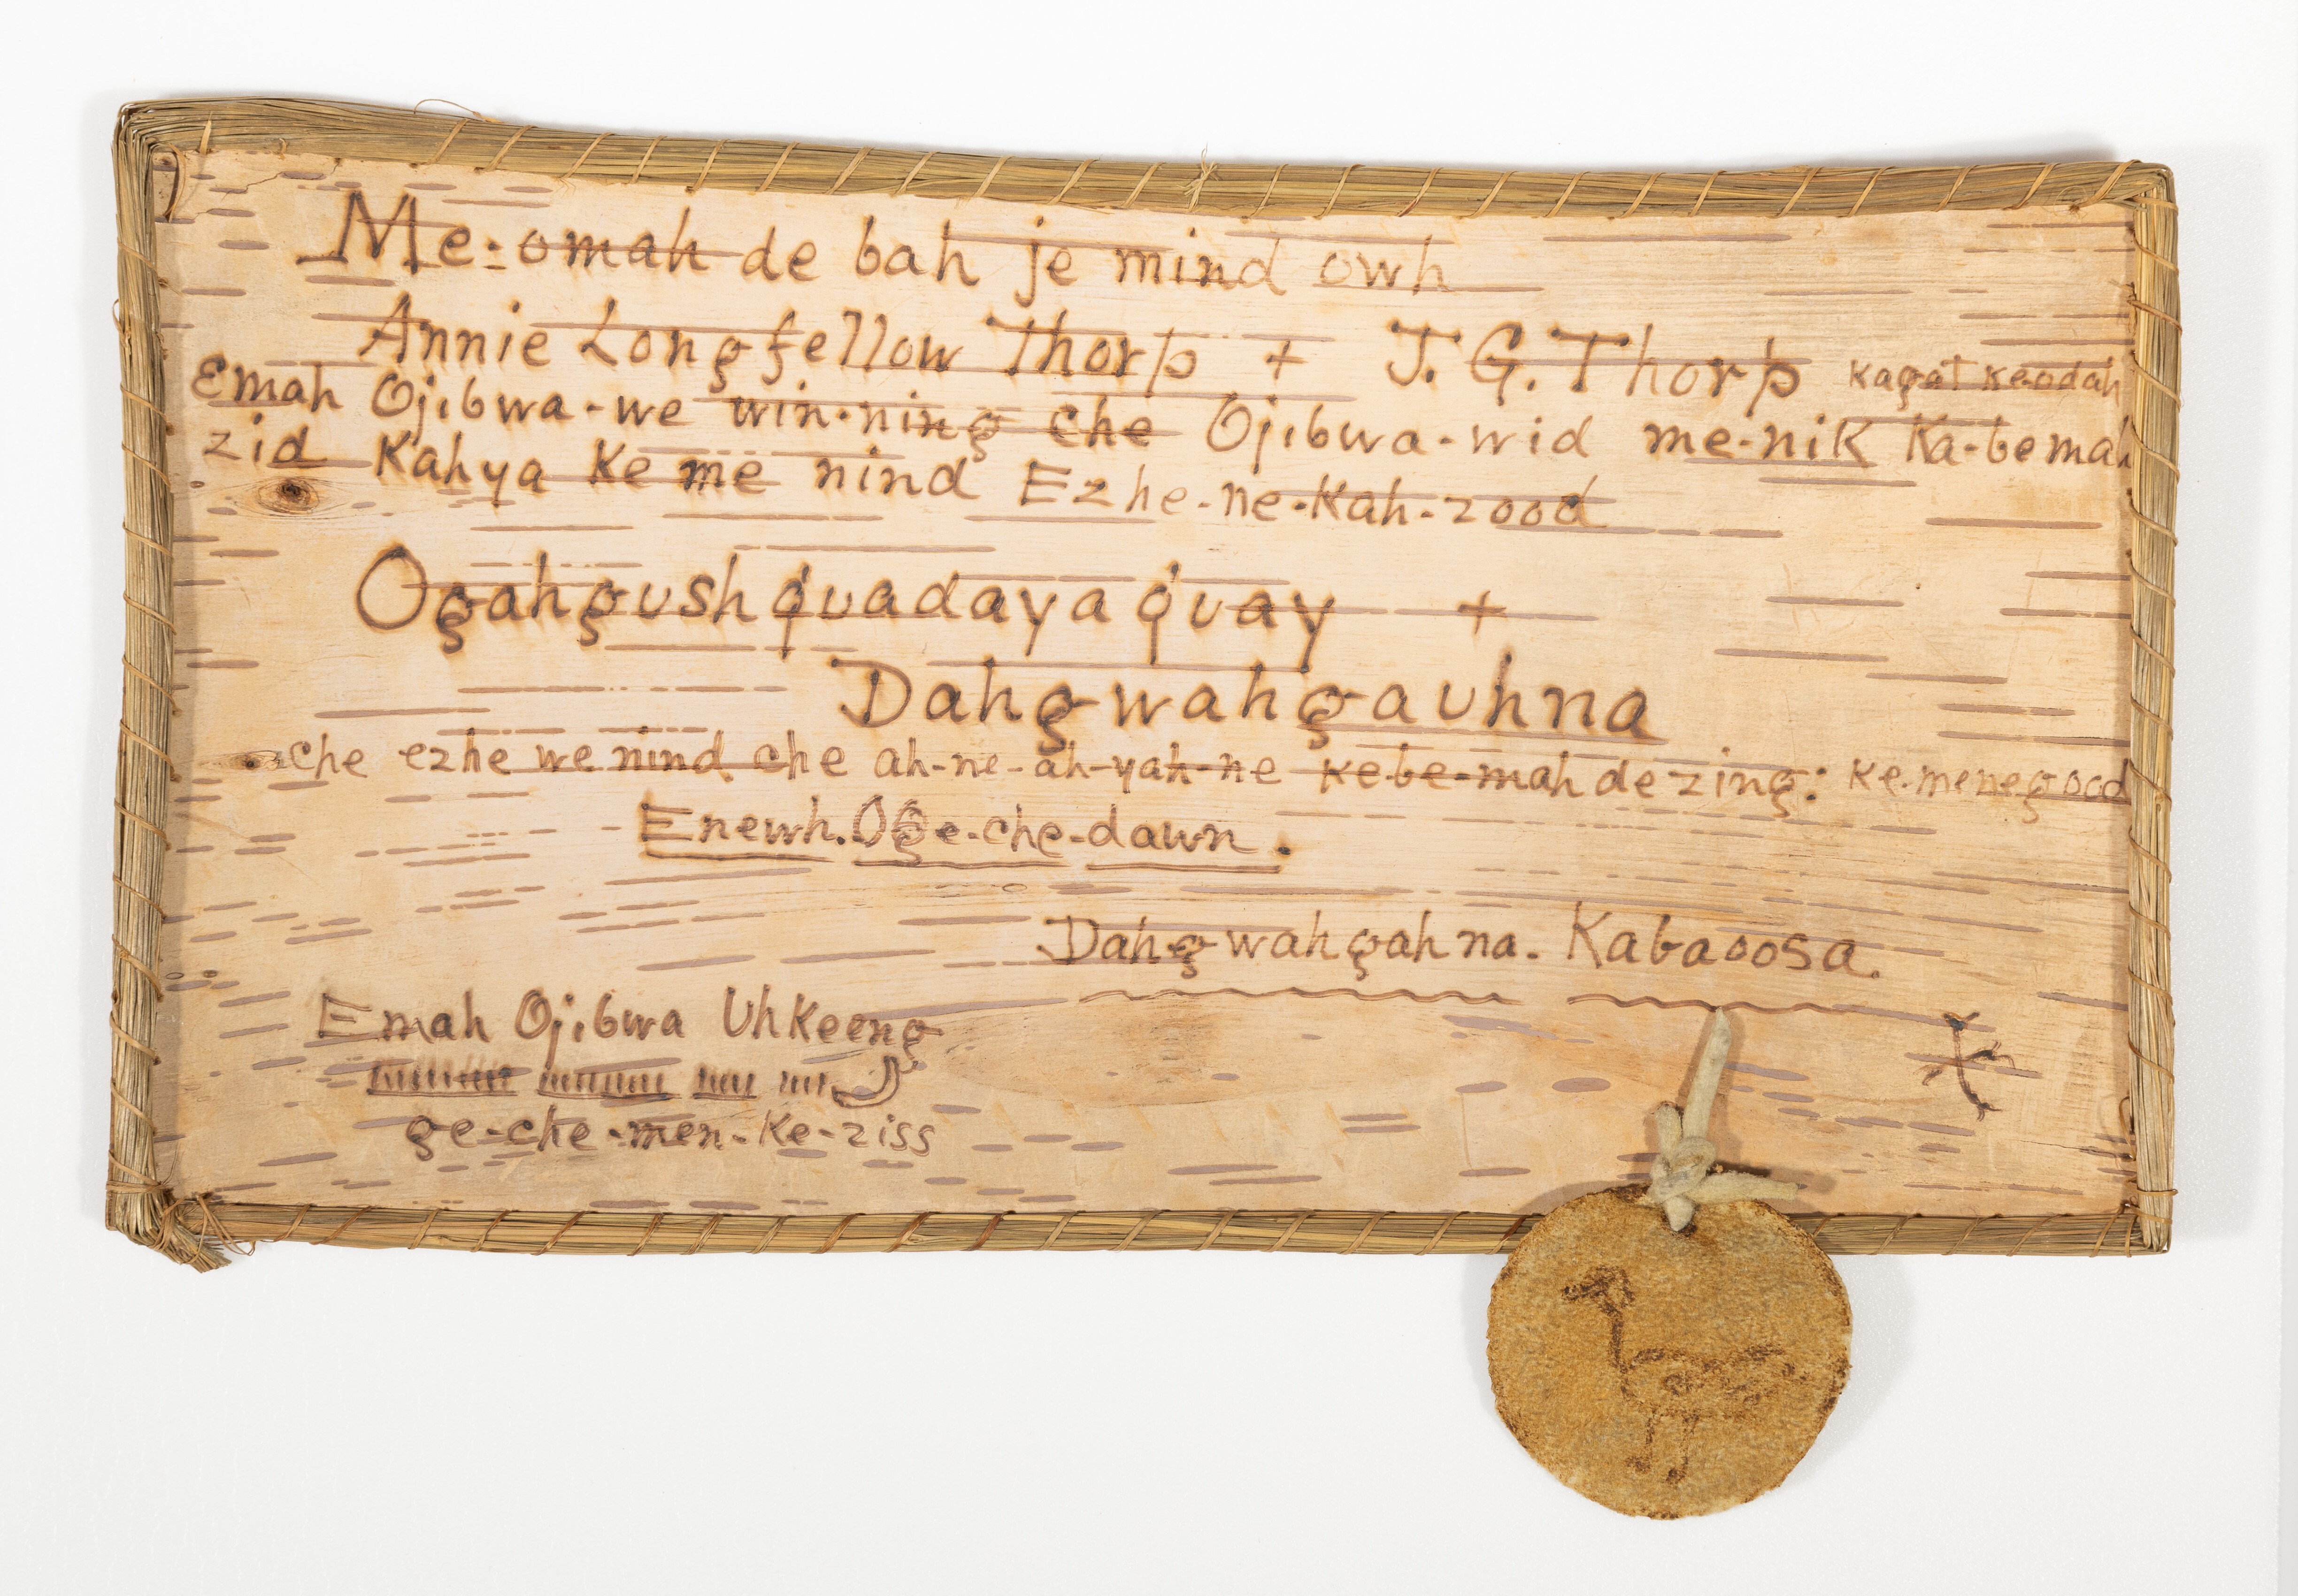 Me-omah de bah je mind owh
Annie Longfellow Thorp + J. G. Thorp kagat keodah
Emah Ojibwa-we win-ning che Ojibwa-wid me-nik Ka-be mah
zid Kahya Ke me nind Ezhe-ne-kah-zood
Ogahgushquadayaquay +
Dahgwahgauhna
che ezhe we nind che ah-ne-ah-yah-ne ke be-mah de zing: ke.menegood
Enewh. Oge-che-dawn.
Dahgwahgahna. Kabaoosa.
Emah Ojibwa Uhkeeng
ge-che-men-ke-ziss